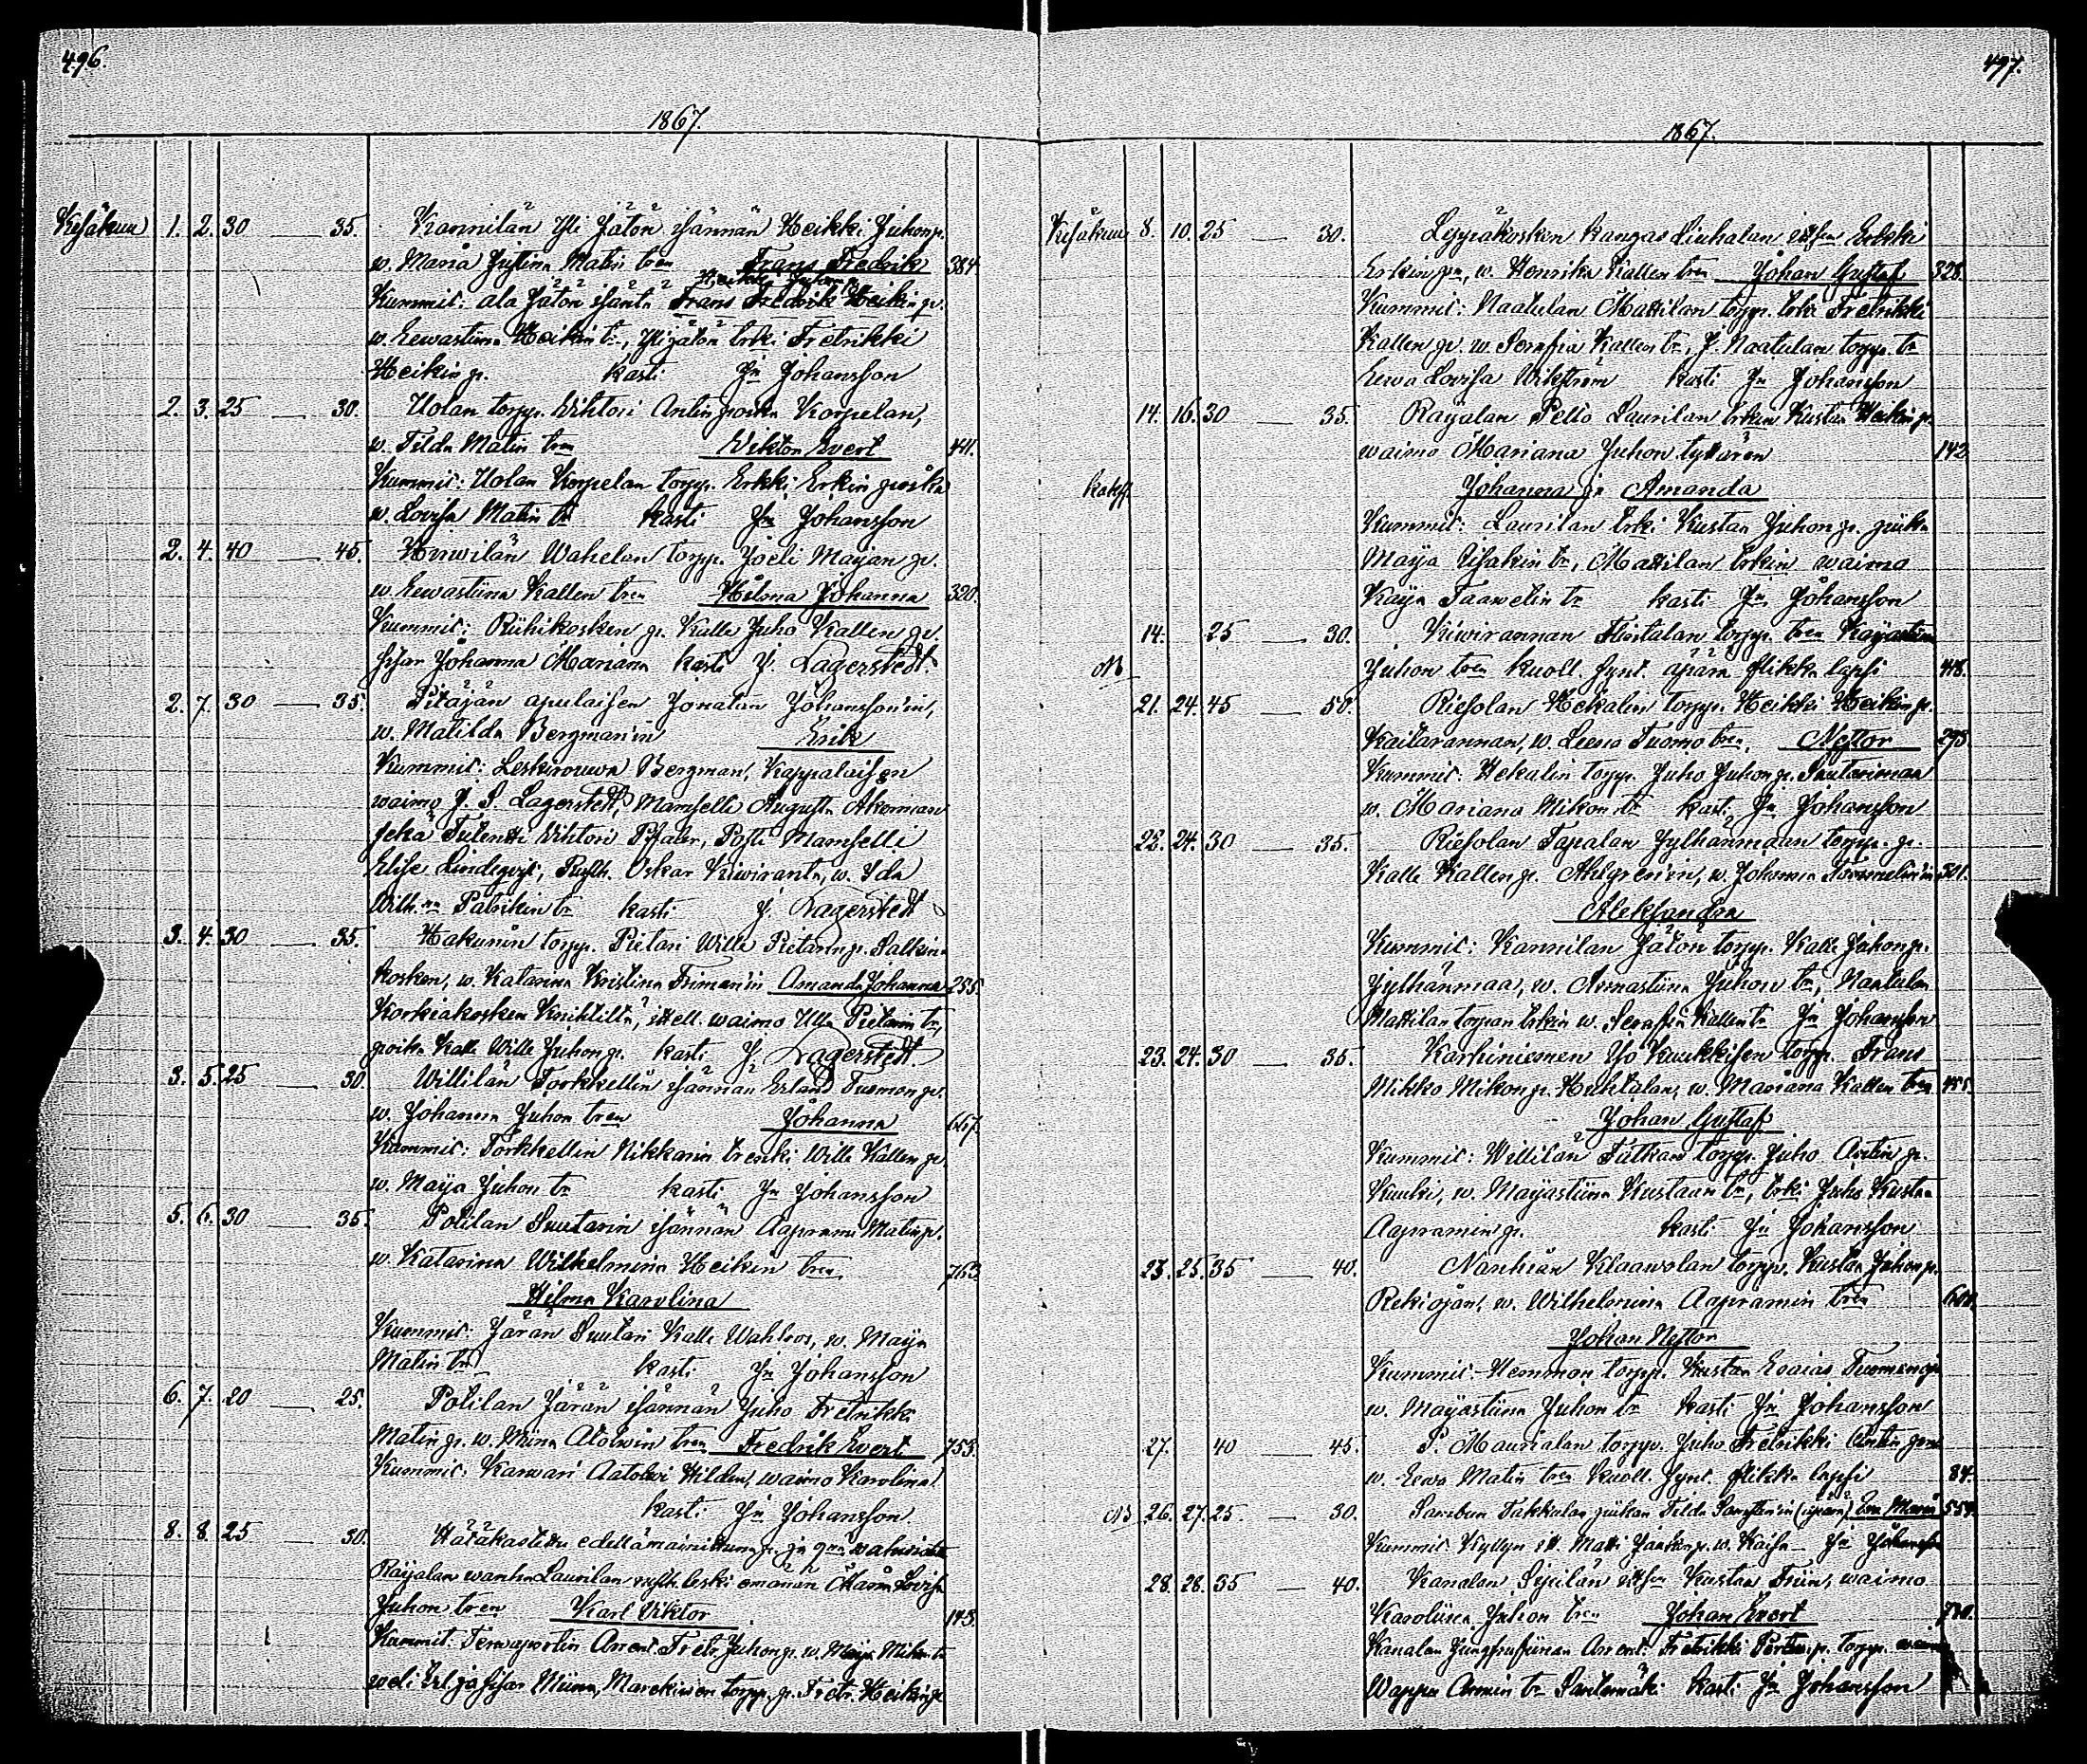 496.
1867.
Kesäkuu 1. 2. 30 — 35. Kannilan Yli Jätön isännän Heikki Juhonp.
w. Maria Justina Matin tren Frans Fredrik 384
Heikki Juhan
Kummit: ala Jätön isäntä Frans Fredrik Heikin p.
w. Eewastiina Heikin tr, Ylijätön trki Fretrikki
Heikin p. kasti Jn Johansson
2. 3. 25 — 30. Uolan torpp. Wihtori Antin poika Korpelan,
w. Tilda Matin tren Viktor Evert 441.
Kummit: Uolan Korpelan torpp. Erkki Erkin poika
w. Lovisa Matin tr kasti Jn Johansson
2. 4. 40 — 45. Hirwilän Wahelan torpp. Joeli Maijan p.
w. Eewastiina Kallen tren Hilma Johanna 320.
Kummit: Riihikosken p. Kalle Juho Kallen p.
sisar Johanna Mariana kasti J. Lagerstedt
2. 7. 30 — 35. Pitäjän apulaisen Jonatan Johansson'in,
w. Matilda Bergman'in Erik
Kummit: Leskirouwa Bergman, Kappalaisen
waimo J. S. Lagerstedt, Mamselli Augusta Akerman
sekä Tutentti Wihtori Pfaler, Posti Mamselli
Elise Lindqvist, Rusth. Oskar Kiwiranta, w. Ida
Wilh.na Patrikin tr kasti J. Lagerstedt
3. 4. 30 — 35. Hakunin torpp. Pietari Wille Pietarin p. Sallin-
kosken, w. Katarina Kristina Friman'in Amanda Johanna 255.
Korkiakosken Knihtiltä, itsell. waimo Ulla Pietarin tr,
poika Kalle Wille Juhon p. kasti J. Lagerstedt
3. 5. 25 — 30. Willilän Torkkellin isännän Erland Tuomon p.
w. Johanna Juhon tren Johanna 667.
Kummit: Torkkellin Nikkarin trenki Wille Kallen p.
w. Maija Juhon tr kasti Jn Johansson
5. 6. 30 — 35. Potilan Suutarin isännän Aaprami Matin p.
w. Katarina Wilhelmina Heikin tren 763
Hilma Karolina
Kummit: Järän Suutari Kalle Wahlroos, w. Maija
Matin tr kasti Jn Johansson
6. 7. 20 — 25. Potilan Järän isännän Juho Fretrikki
Matin p. w. Miina Atolwin tren Fredrik Evert 753.
Kummit: Karwari Aatolwi Hilden, waimo Karolina
kasti Jn Johansson
8. 8. 25 — 30. Hätäkastettu edellämainittuna p. ja
Raijalan wanhan Laurilan rusth. leski emännän Maria Lovisa
Juhon tren Karl Viktor 143.
Kummit: Terwaportin Arrent. Fretr. Juhon p. w. Maija Mikon tr
weli Erl. ja sisar Miina, Marckisen torpp. p. Fretr. Heikin p.
497.
1867.
Kesäkuu 8. 10. 25 — 30. Leppäkosken kangas Liuhalan itsen Erkki
Erkin p.n, w. Henrika Kallen tren Johan Gustaf 328.
Kummit: Naatulan Mattilan torpp. trki Fretrikki
Kallen p. w. Serafia Kallen tr, J. Naatulan torpp. tr
Eewa Lovisa Wikström kasti Jn Johansson
14. 16. 30 — 35. Raijalan Pello Laurilan trkin Kustan Heikin p.
waimo Mariana Juhon tyttären 142
kaks.
Johanna ja Amanda
Kummit: Laurilan trki Kustan Juhon p. piika
Maija Iisakin tr, Mattilan trkin waimo
Kaija Taawetin tr kasti Jn Johansson
14. 25 — 30. Kiwirannan torpp. tren
Ab Juhon tren kuoll. synt. äpärä flikka lapsi 418.
21. 24. 45 — 50. Riesolan Hekalin torpp. Heikki Heikin p.
Kaitarannan, w. Leena Tuomo tren, Nestor 293
Kummit: Hekalin torpp. Juho Juhon p. Suutarinmaa
w. Mariana Mikon tr kasti Jn Johansson
22. 24. 30 — 35. Riesolan Tapalan Jylhänmaan torpp. p.
Kalle Kallen p. Ahlgrenin, w. Johanna 501.
Aleksandra
Kummit: Kannilan Jätön torpp. Kalle Juhon p.
Jylhänmaa, w. Annastiina Juhon tr, Naatulan
Mattilan torpan trkin w. Serafia Kallen tr Jn Johansson
23. 24. 30 — 35. Karhiniemen Yo Kuukkisen torpp. Frans
Mikko Mikon p. Huhtalan, w. Mariana Kallen tren 455.
Johan Gustaf
Kummit: Willilän Tutkan torpp. Juho Antin p.
Kuuki, w. Maijastiina Kustaan tr, trki Juho Kustaa
Aapramin p. kasti Jn Johansson
23. 25. 35 — 40. Nanhian Klaawolan torpp. Kustaa Juhon p.
Rekiojan, w. Wilhelmiina Aapramin tren 600.
Johan Nestor
Kummit: Hemmon torpp. Kustaa Esaias Tuomen p.
w. Maijastiina Juhon tr kasti Jn Johansson
27. 40 — 45. P. Maurialan torpp. Juho Fretrikki Antin p.
w. Eewa Matin tren kuoll. synt. flikka lapsi 84.
Ab 26. 27. 25 — 30. Takkulan piikan Tilda (äpärä) Maria 554.
Kummit itt. Matti p. w. Kaisa Jn Johansson
28. 28. 35 — 40. Kanalan Sipilän itsen Kustaa Friin, waimo
Karoliina Juhon tren Johan Evert 710.
Kanalan Arrent. Fretrikki p. torpp. waimo
Wappu Annin tr Santamäki kasti Jn Johansson